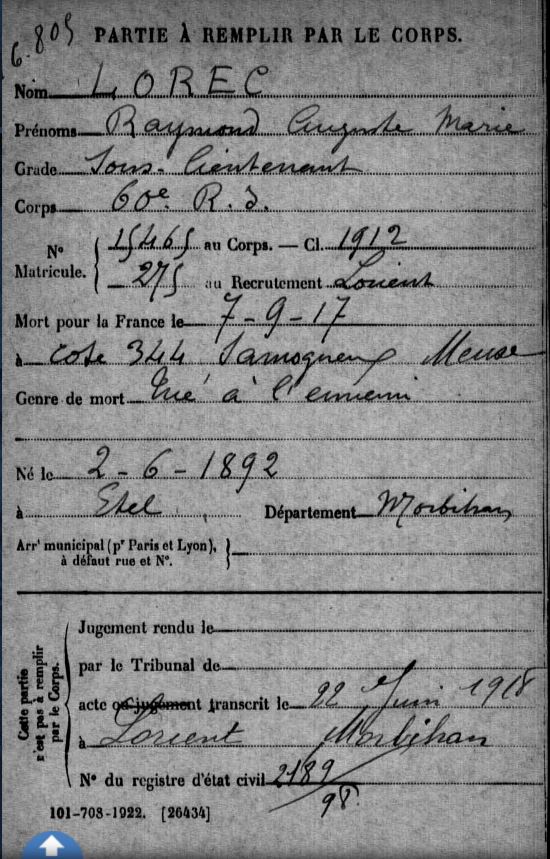 6.805
PARTIE À REMPLIR PAR LE CORPS.
Nom LOREC
Prénoms Raymond Auguste Marie
Grade Sous-lieutenant
Corps 60e R.I.
N° Matricule. { 15465 au Corps. — Cl. 1912
275 au Recrutement Lorient
Mort pour la France le 7-9-17
à cote 344 Samogneux Meuse
Genre de mort Tué à l'ennemi
Né le 2-6-1892
à Etel Département Morbihan
Arrt municipal (pr Paris et Lyon), }
à défaut rue et N°.
Cette partie n'est pas à remplir par le Corps.
Jugement rendu le
par le Tribunal de
acte ou jugement transcrit le 22 Juin 1918
à Lorient Morbihan
N° du registre d'état civil 2189/98
101-708-1922. [26434]